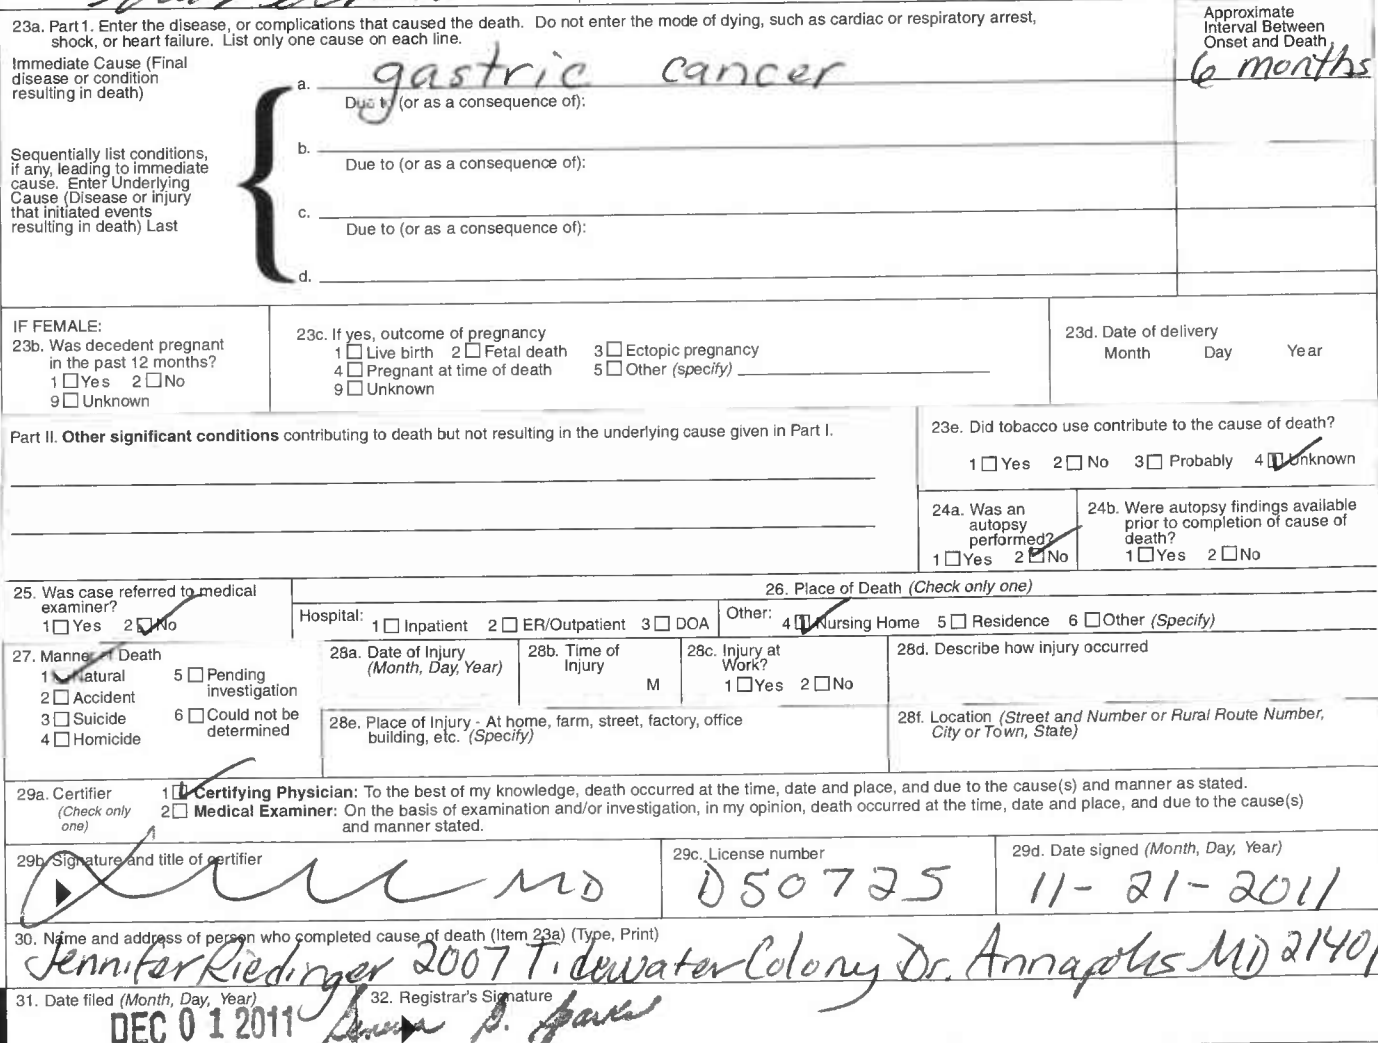 23a. Part 1. Enter the disease, or complications that caused the death. Do not enter the mode of dying, such as cardiac or respiratory arrest,
shock, or heart failure. List only one cause on each line.
Approximate
Interval Between
Onset and Death
Immediate Cause (Final
disease or condition
resulting in death)
a. gastric cancer
6 months
Due to (or as a consequence of):
Sequentially list conditions,
if any, leading to immediate
cause. Enter Underlying
Cause (Disease or injury
that initiated events
resulting in death) Last
b.
Due to (or as a consequence of):
c.
Due to (or as a consequence of):
d.
IF FEMALE:
23b. Was decedent pregnant
in the past 12 months?
1 Yes 2 No
9 Unknown
23c. If yes, outcome of pregnancy
1 Live birth 2 Fetal death 3 Ectopic pregnancy
4 Pregnant at time of death 5 Other (specify)
9 Unknown
23d. Date of delivery
Month Day Year
Part II. Other significant conditions contributing to death but not resulting in the underlying cause given in Part I.
23e. Did tobacco use contribute to the cause of death?
1 Yes 2 No 3 Probably 4 Unknown
24a. Was an
autopsy
performed?
1 Yes 2 No
24b. Were autopsy findings available
prior to completion of cause of
death?
1 Yes 2 No
25. Was case referred to medical
examiner?
1 Yes 2 No
26. Place of Death (Check only one)
Hospital: 1 Inpatient 2 ER/Outpatient 3 DOA
Other: 4 Nursing Home 5 Residence 6 Other (Specify)
27. Manner of Death
1 Natural
2 Accident
3 Suicide
4 Homicide
5 Pending
investigation
6 Could not be
determined
28a. Date of Injury
(Month, Day, Year)
28b. Time of
Injury
M
28c. Injury at
Work?
1 Yes 2 No
28d. Describe how injury occurred
28e. Place of Injury - At home, farm, street, factory, office
building, etc. (Specify)
28f. Location (Street and Number or Rural Route Number,
City or Town, State)
29a. Certifier
(Check only
one)
1 Certifying Physician: To the best of my knowledge, death occurred at the time, date and place, and due to the cause(s) and manner as stated.
2 Medical Examiner: On the basis of examination and/or investigation, in my opinion, death occurred at the time, date and place, and due to the cause(s)
and manner stated.
29b. Signature and title of certifier
MD
29c. License number
D50725
29d. Date signed (Month, Day, Year)
11-21-2011
30. Name and address of person who completed cause of death (Item 23a) (Type, Print)
Jennifer Riedinger 2007 Tidewater Colony Dr. Annapolis MD 21401
31. Date filed (Month, Day, Year)
DEC 01 2011
32. Registrar's Signature